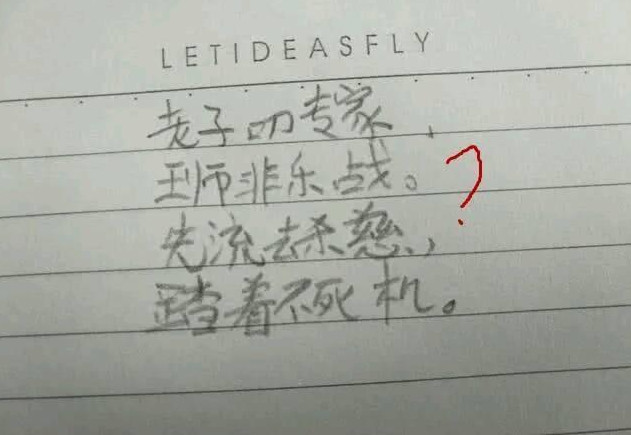 LETIDEASFLY
老子叨专家，
王师非乐战。
失流去杀慈，
着不死机。